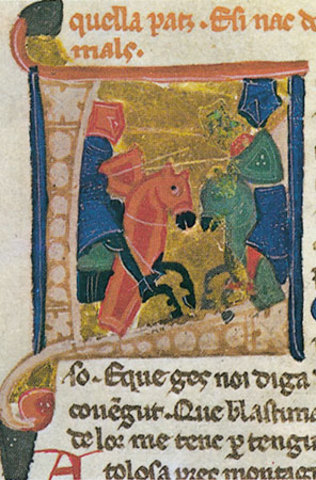 quella patz. Esi nac de
mals.
so. Eque ges noi diga
couēgut. Que blastima
de lor me tenc ꝑ tengu
A tolosa pres montagu